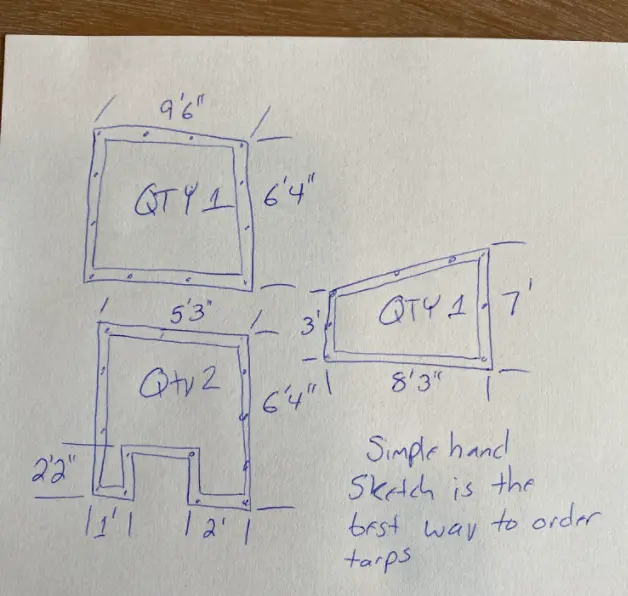 9'6"
QTY 1
6'4"
5'3"
Qty 2
6'4"
2'2"
1'
2'
3'
QTY 1
7'
8'3"
Simple hand
Sketch is the
best way to order
tarps